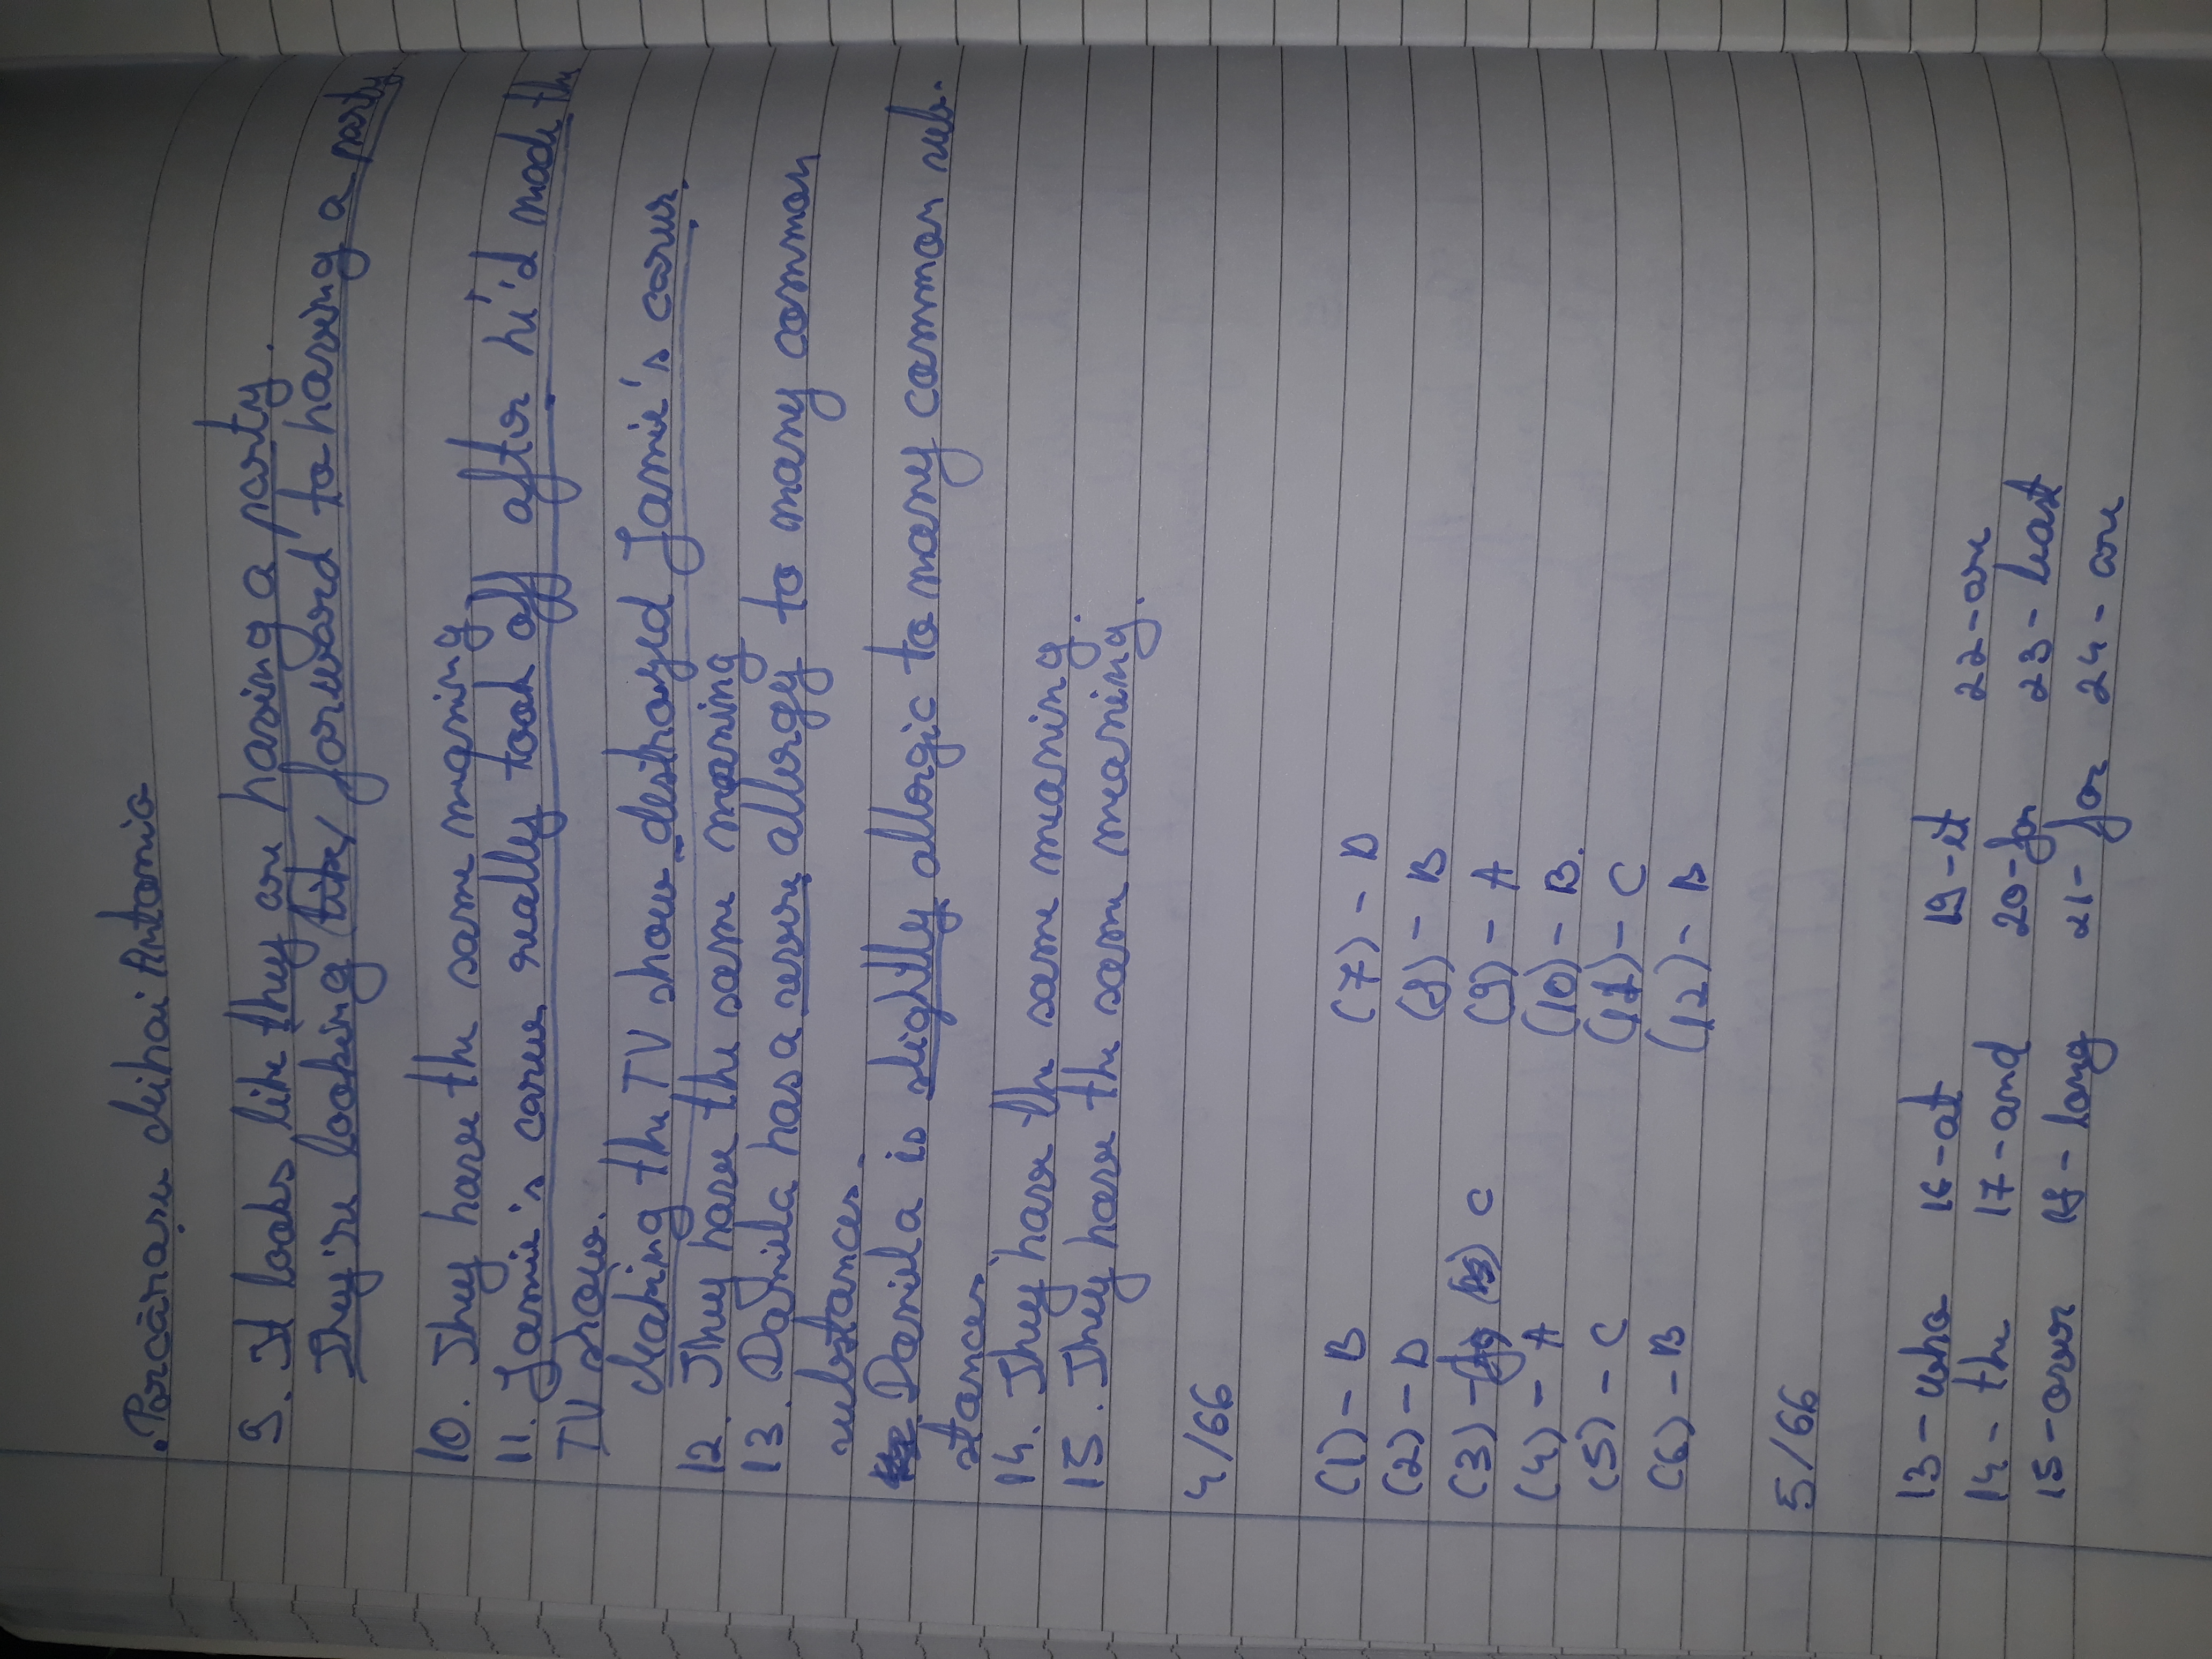 Porcărașu Mihai Antonio
9. It looks like they are having a party.
They're looking forward to having a party
10. They have the same meaning
11. Jamie's career really took off after he'd made the
TV show.
Making the TV show destroyed Jamie's career.
12. They have the same meaning
13. Daniela has a severe allergy to many common
substances.
Daniela is slightly allergic to many common sub-
stances.
14. They have the same meaning.
15. They have the same meaning.
4/66
(1) - B (7) - D
(2) - D (8) - B
(3) - C (9) - A
(4) - A (10) - B.
(5) - C (11) - C
(6) - B (12) - B
5/66
13 - who 16 - at 19 - it 22 - are
14 - the 17 - and 20 - for 23 - least
15 - over 18 - long 21 - for 24 - are